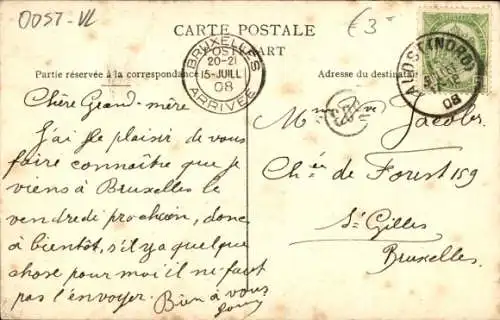 OOST-VL
€3-
CARTE POSTALE
POSTKAART
Partie réservée à la correspondance
Adresse du destinataire
BRUXELLES
20-21
15-JUILL
08
ARRIVÉE
ALOST (NORD)
08
Chère Grand-mère
J'ai le plaisir de vous
faire connaître que je
viens à Bruxelles le
vendredi prochain, donc
à bientôt, s'il y a quelque
chose pour moi il ne faut
pas l'envoyer. Bien à vous
Mme Vve Jacobs
Chée de Forest 159
St Gilles
Bruxelles